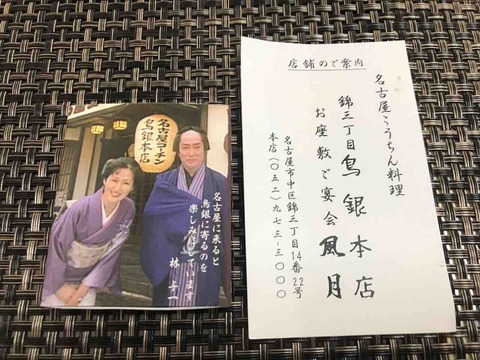 名古屋コーチン
鳥銀本店
名古屋に来ると
鳥銀に寄るのを
楽しみにしています
林 与一
店舗のご案内
名古屋こうちん料理
錦三丁目鳥銀本店
お座敷ご宴会風月
名古屋市中区錦三丁目14番22号
本店(〇五二)九七三-三〇〇〇